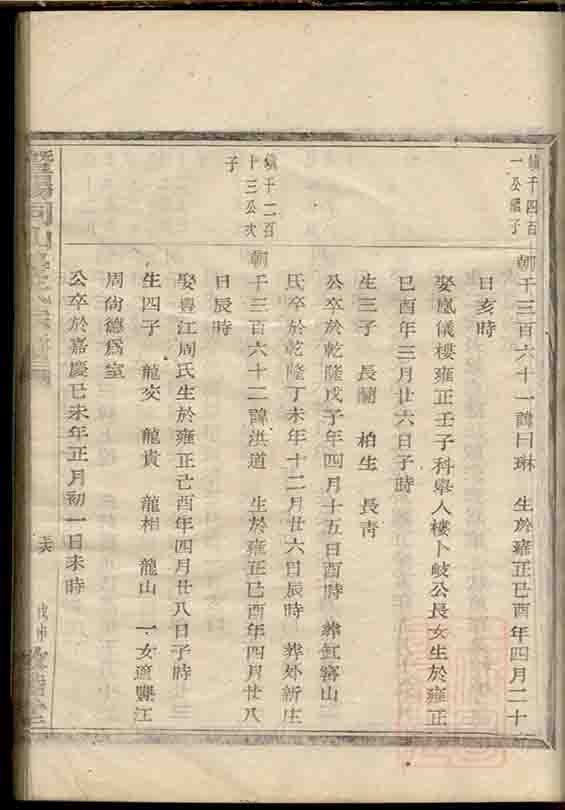 鎮千四百
一公繼子
朝千三百六十一諱日琳　生於雍正己酉年四月二十
日亥時
娶凰儀樓雍正壬子科舉人樓卜岐公長女生於雍正
己酉年三月廿六日子時
生三子　長蘭　柏生　長青
公卒於乾隆戊子年四月十五日酉時　葬缸窰山
氏卒於乾隆丁未年十二月廿六日辰時　葬外新庄
鎮千二百
十三公次
子
朝千三百六十二諱洪道　生於雍正己酉年四月廿八
日辰時
娶豊江周氏生於雍正己酉年四月廿八日子時
生四子　龍交　龍貴　龍相　龍山　一女適豊江
周尙德爲室
公卒於嘉慶己未年正月初一日未時